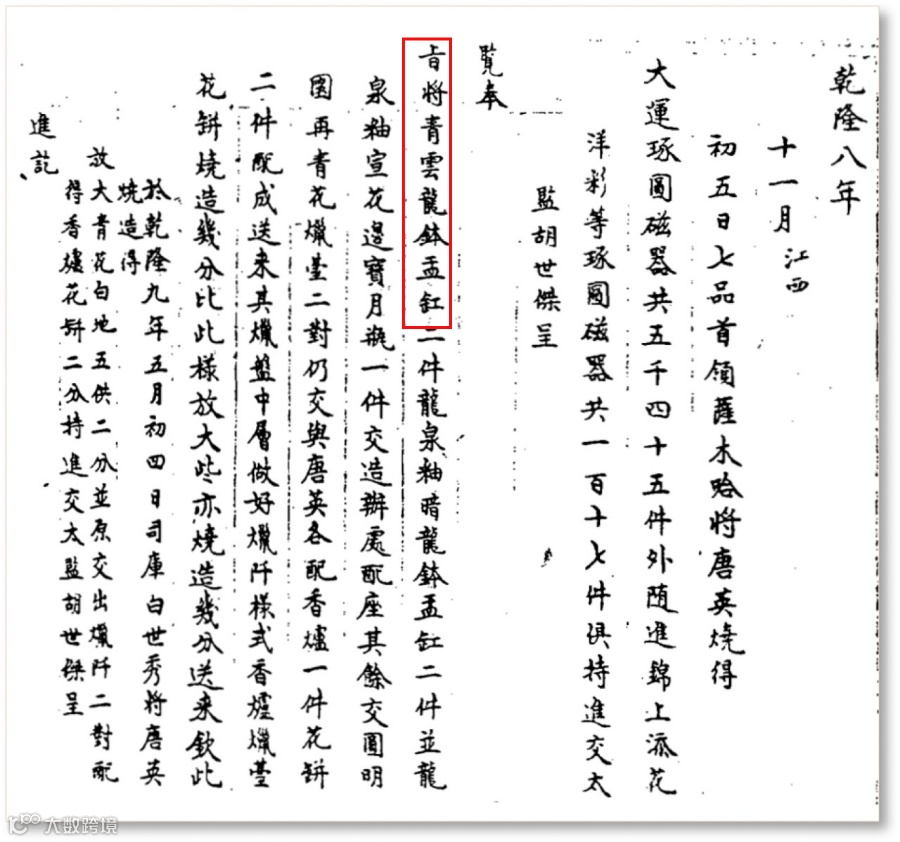 乾隆八年
十一月 江西
初五日七品首領薩木哈將唐英燒得
大運琢圓磁器共五千四十五件外随進錦上添花
洋彩等琢圓磁器共一百十七件俱持進交太
監胡世傑呈
覽奉
旨將青雲龍鉢盂缸二件龍泉釉暗龍鉢盂缸二件並龍
泉釉宣花邊寶月瓶一件交造辦處配座其餘交圓明
園再青花爉臺二對仍交與唐英各配香爐一件花缾
二件配成送来其爉盤中層做好爉阡樣式香爐爉臺
花缾燒造幾分比此樣放大些亦燒造幾分送来欽此
於乾隆九年五月初四日司庫白世秀將唐英
燒造得
放大青花白地五供二分並原交出爉阡二對配
得香爐花缾二分持進交太監胡世傑呈
進訖
大数跨境